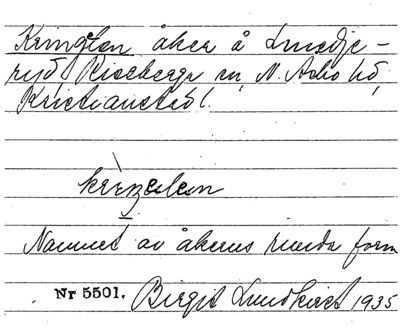 Kringlan åker å Smedje-
ryd Riseberga sn, N. Åsbo hd,
Kristianstad l.
Namnet av åkerns runda form
Nr 5501. Birgit Lundkvist 1935